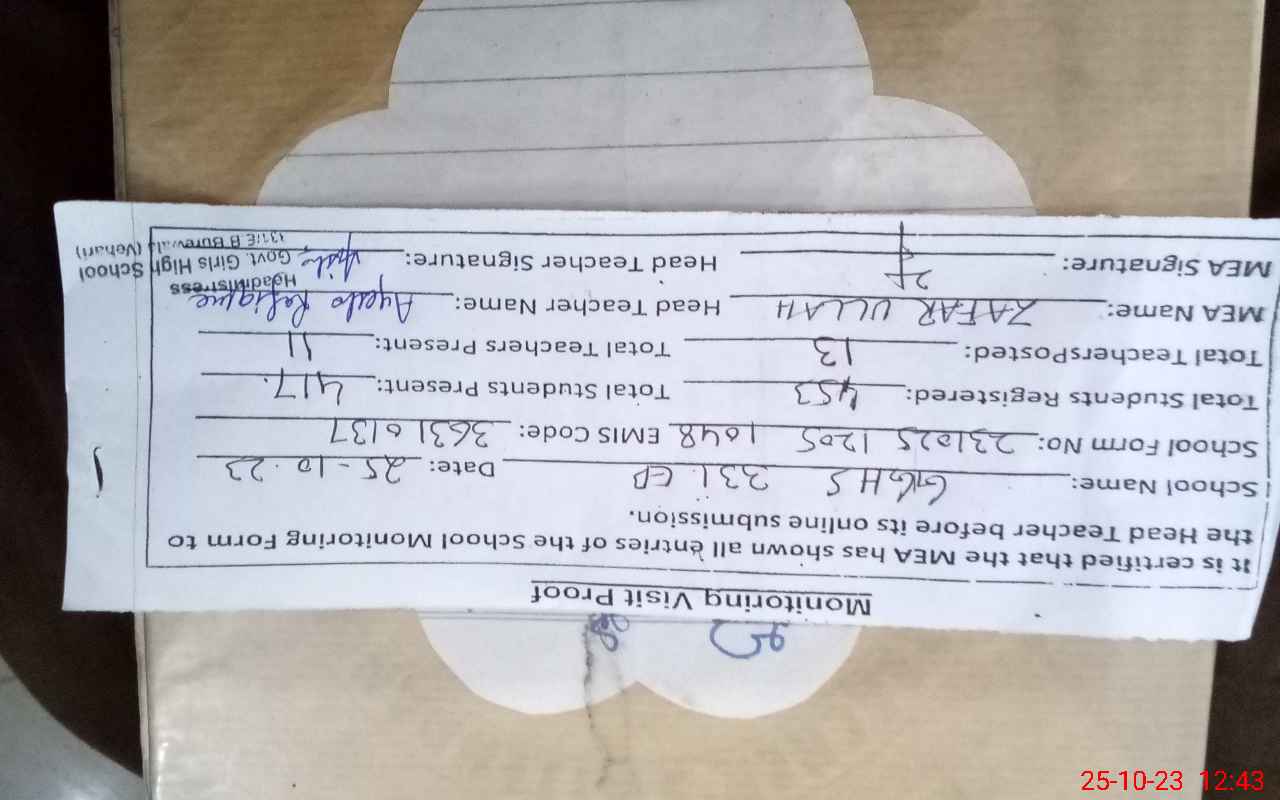 Monitoring Visit Proof
It is certified that the MEA has shown all entries of the School Monitoring Form to
the Head Teacher before its online submission.
School Name: GGHS 331 EB Date: 25-10-23
School Form No: 231025 1205 1048 EMIS Code: 36310137
Total Students Registered: 453 Total Students Present: 417
Total TeachersPosted: 13 Total Teachers Present: 11
MEA Name: ZAFAR ULLAH Head Teacher Name: Rafique
MEA Signature: Head Teacher Signature:
Headmistress
Govt. Girls High School
E B Burewala (Vehari)
25-10-23 12:43